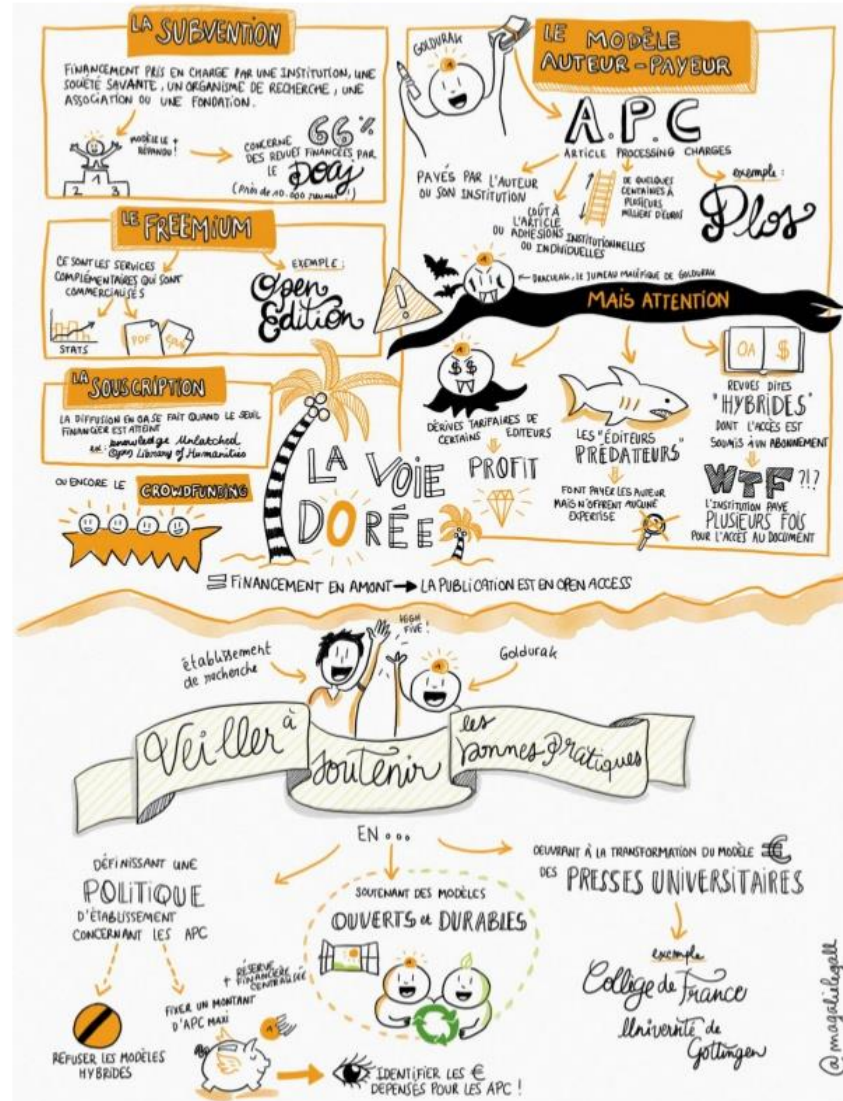 LA SUBVENTION
FINANCEMENT PRIS EN CHARGE PAR UNE INSTITUTION, UNE
SOCIÉTÉ SAVANTE, UN ORGANISME DE RECHERCHE, UNE
ASSOCIATION OU UNE FONDATION.
MODÈLE LE +
RÉPANDU !
2 1 3
CONCERNE 66%
DES REVUES FINANCÉES PAR
LE DOAJ
(Près de 10.000 revues !)
LE FREEMIUM
CE SONT LES SERVICES
COMPLÉMENTAIRES QUI SONT
COMMERCIALISÉS
STATS
PDF
EPUB
EXEMPLE :
Open
Edition
LA SOUSCRIPTION
LA DIFFUSION EN OA SE FAIT QUAND LE SEUIL
FINANCIER EST ATTEINT
ex: Knowledge Unlatched
Open Library of Humanities
OU ENCORE LE CROWDFUNDING
GOLDURAK
LE MODÈLE
AUTEUR-PAYEUR
A.P.C
ARTICLE PROCESSING CHARGES
PAYÉS PAR L'AUTEUR
OU SON INSTITUTION
COÛT À
L'ARTICLE
OU ADHÉSIONS INSTITUTIONNELLES
OU INDIVIDUELLES
DE QUELQUES
CENTAINES À
PLUSIEURS
MILLIERS D'EUROS
exemple :
Plos
← DRACULAK, LE JUMEAU MALÉFIQUE DE GOLDURAK
!
MAIS ATTENTION
$ $
DÉRIVES TARIFAIRES DE
CERTAINS ÉDITEURS
PROFIT
LES "ÉDITEURS
PRÉDATEURS"
FONT PAYER LES AUTEUR
MAIS N'OFFRENT AUCUNE
EXPERTISE
OA $
REVUES DITES
"HYBRIDES"
DONT L'ACCÈS EST
SOUMIS À UN ABONNEMENT
WTF ?!?
L'INSTITUTION PAYE
PLUSIEURS FOIS
POUR L'ACCÈS AU DOCUMENT
LA VOIE
DORÉE
= FINANCEMENT EN AMONT → LA PUBLICATION EST EN OPEN ACCESS
établissement
de recherche
HIGH
FIVE !
Goldurak
Veiller à
soutenir
les
bonnes Pratiques
EN...
DÉFINISSANT UNE
POLITIQUE
D'ÉTABLISSEMENT
CONCERNANT LES APC
REFUSER LES MODÈLES
HYBRIDES
FIXER UN MONTANT
D'APC MAXI
+ RÉSERVE
FINANCIÈRE
CENTRALISÉE
IDENTIFIER LES €
DÉPENSÉS POUR LES APC !
SOUTENANT DES MODÈLES
OUVERTS et DURABLES
OEUVRANT À LA TRANSFORMATION DU MODÈLE €
DES PRESSES UNIVERSITAIRES
exemple
Collège de France
Université de
Gottingen
@magalielegall